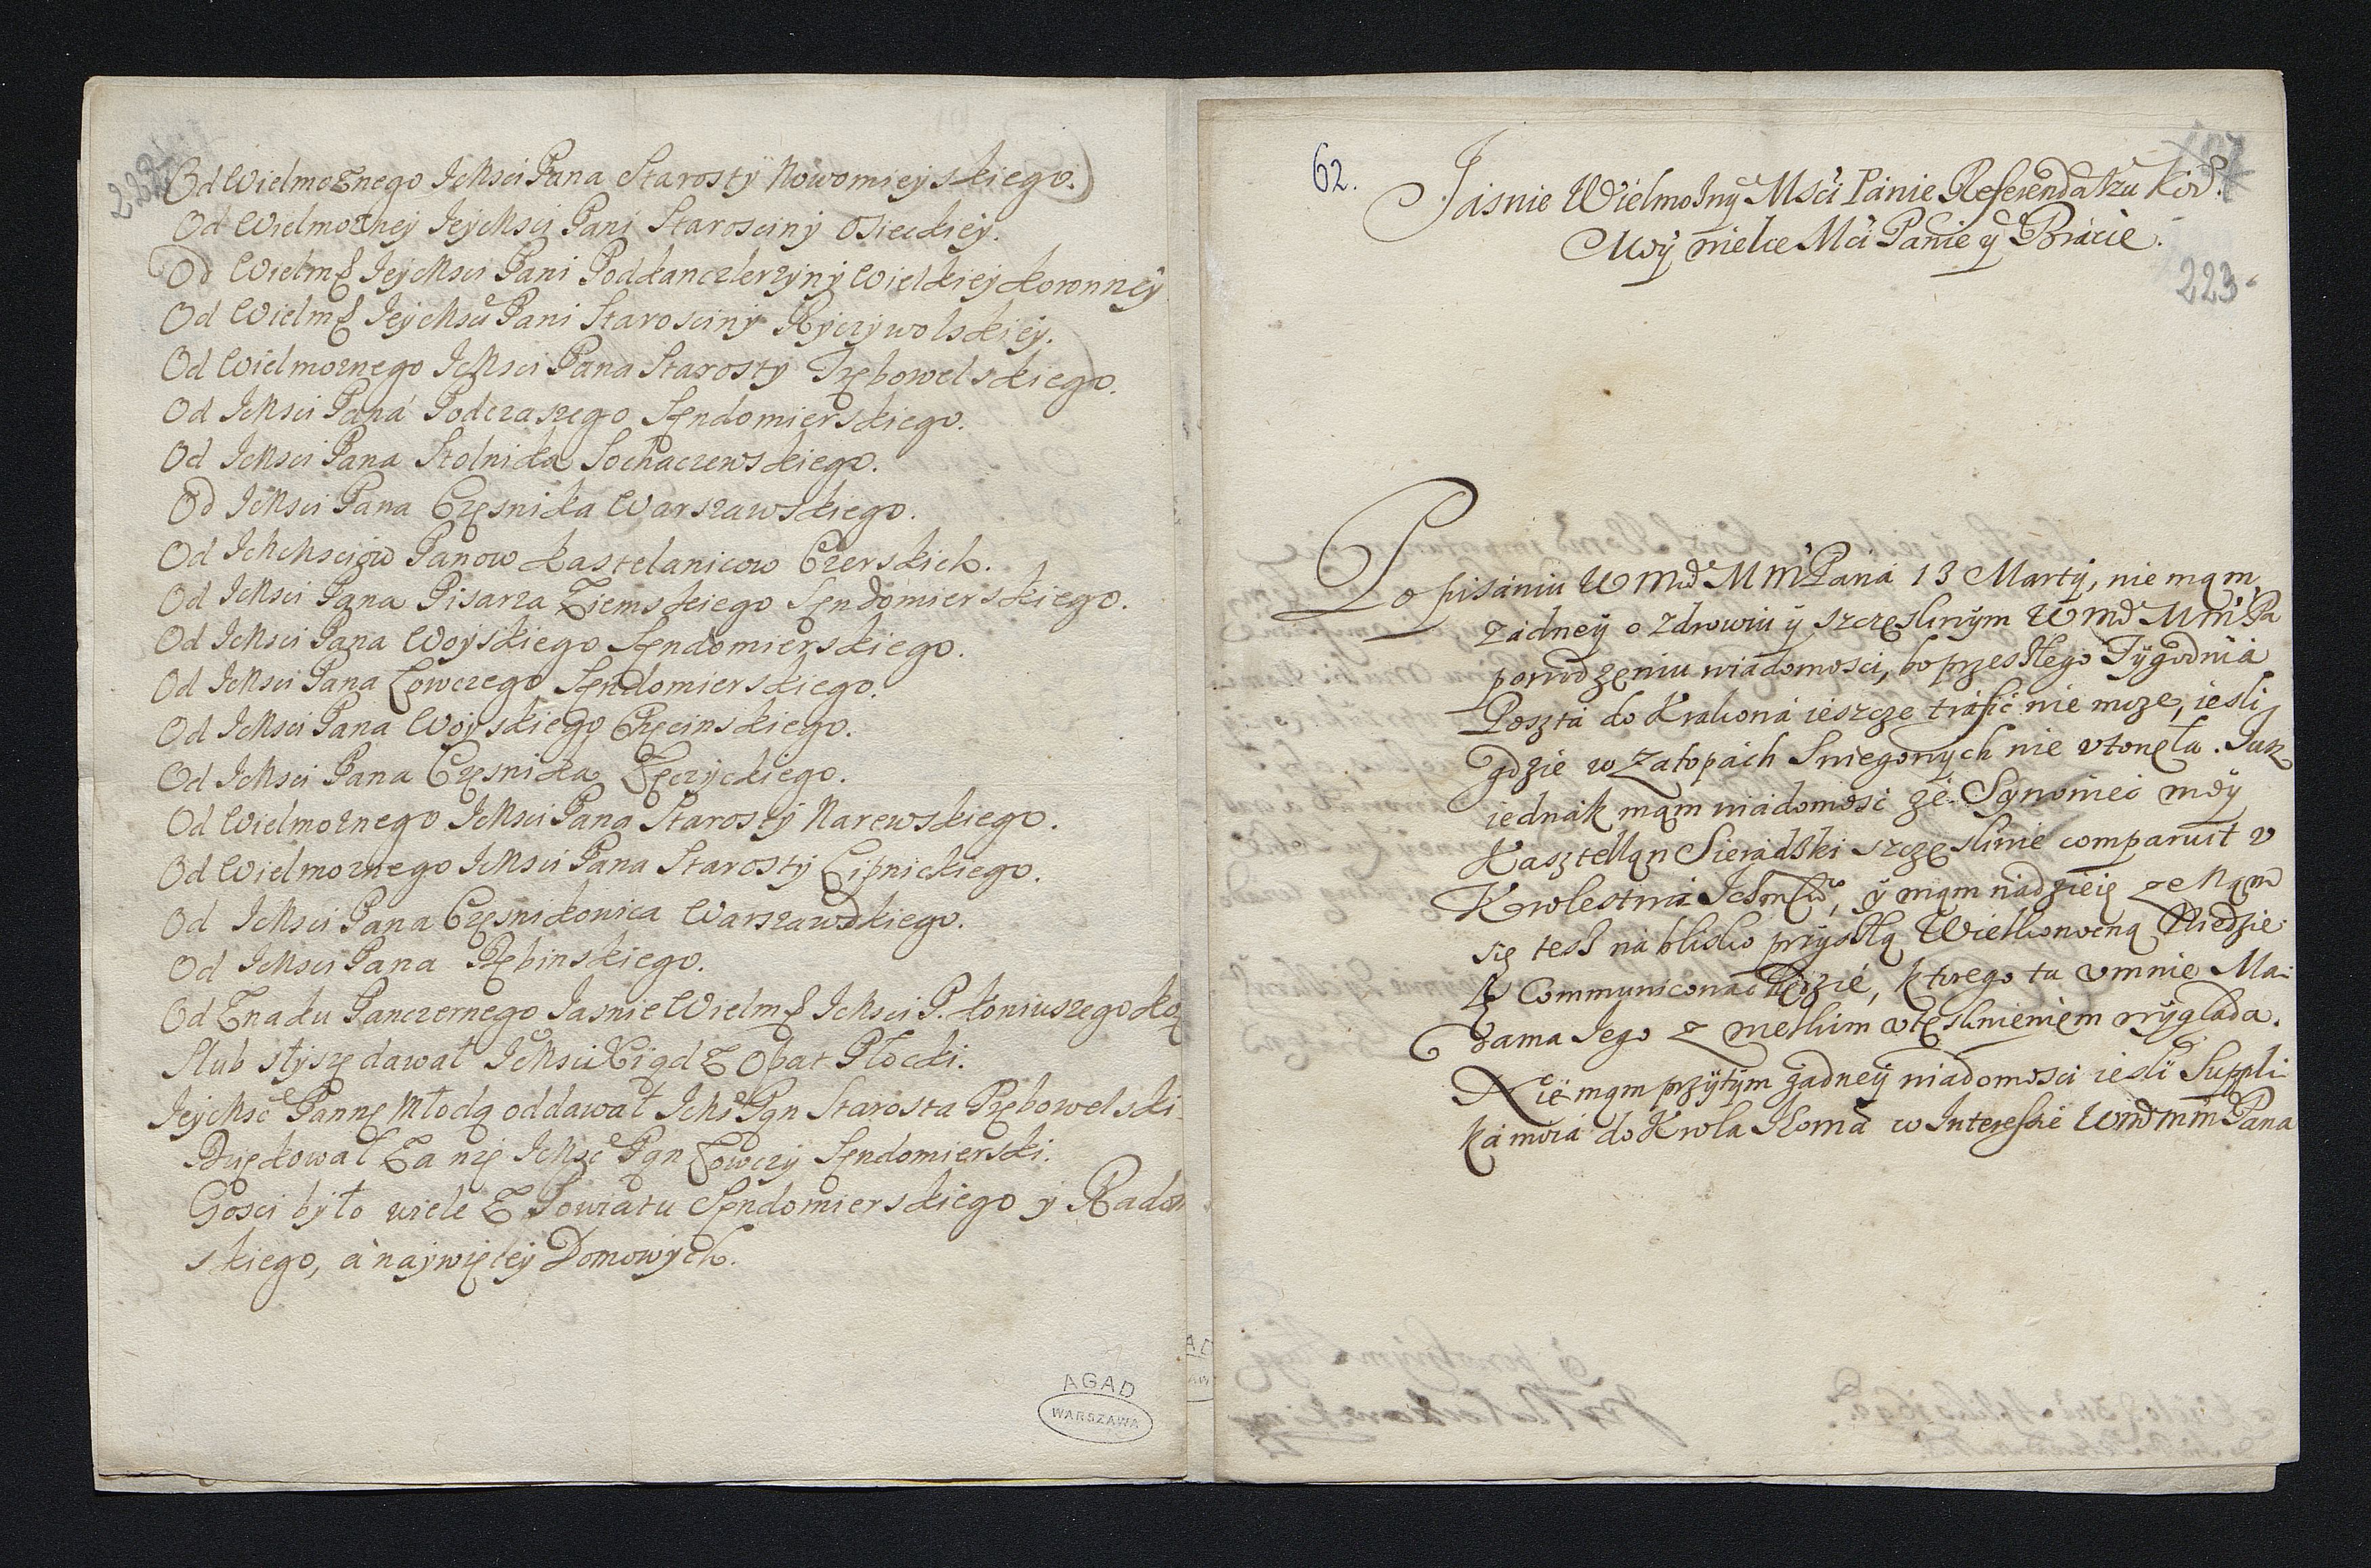 Od Wielmożnego JeMsci Pana Starosty Nowomieyskiego.
Od Wielmożney JeyMsci Pani Starosciny Osieckiey.
Od Wielmż JeyMsci Pani Podkanclerzyny Wielkiey Koronney
Od Wielmż JeyMsci Pani Starosciny Ryczywolskiey.
Od Wielmożnego JeMsci Pana Starosty Trębowelskiego.
Od JeMsci Pana Podczaszego Sendomierskiego.
Od JeMsci Pana Stolnika Sochaczewskiego.
Od JeMsci Pana Czesnika Warszawskiego.
Od IchMsciow Panow Kastelanicow Czerskich.
Od JeMsci Pana Pisarza Ziemskiego Sendomierskiego.
Od JeMsci Pana Woyskiego Sendomierskiego.
Od JeMsci Pana Łowczego Sendomierskiego.
Od JeMsci Pana Woyskiego Chęcinskiego.
Od JeMsci Pana Czesnika Łęczyckiego.
Od Wielmożnego JeMsci Pana Starosty Narewskiego.
Od Wielmożnego JeMsci Pana Starosty Lipnickiego.
Od JeMsci Pana Czesnikowica Warszawskiego.
Od JeMsci Pana Rębinskiego.
Od Znaku Pancernego Jasnie Wielmż JeMsci P. Koniuszego
Slub słyszę dawał JeMsci Xiądz Opat Płocki.
JeyMsc Pannę Młodą oddawał JeMsc Pan Starosta Trębowelski
Dziękował Za nię JeMsc Pan Łowczy Sendomierski.
Gosci było wiele Z Powiatu Sendomierskiego y Radom
skiego, a naywięcey Domowych.
AGAD
WARSZAWA
62.
Jasnie Wielmożny Msci Panie Referendarzu Kor.
Moy wielce Mci Panie y Bracie.
223
Po pisaniu WMd MMPana 13 Marty, nie mam
żadney o zdrowiu y szczęsliwym WMd MMPa
powodzeniu wiadomosci, bo przeszłego Tygodnia
Poszta do Krakowa ieszcze trafic nie może, iesli
gdzie w Zatopach Sniegowych nie utonęła. Jusz
iednak mam wiadomosc że Synowiec moy
Kasztellan Sieradzki szczęsliwie comparuit u
Krolestwa Ichmciow, y mam nadzieię ze Nam
się tesz na blisko przyszłą Wielkonocną Niedzie
lę Communicowac będzie, ktorego tu u mnie Ma
dama Jego z wielkim utesknieniem wygląda.
Nie mam przytym żadney wiadomosci iesli Suppli
ka moia do Krola Jeomci w Interessie WMd MMPana